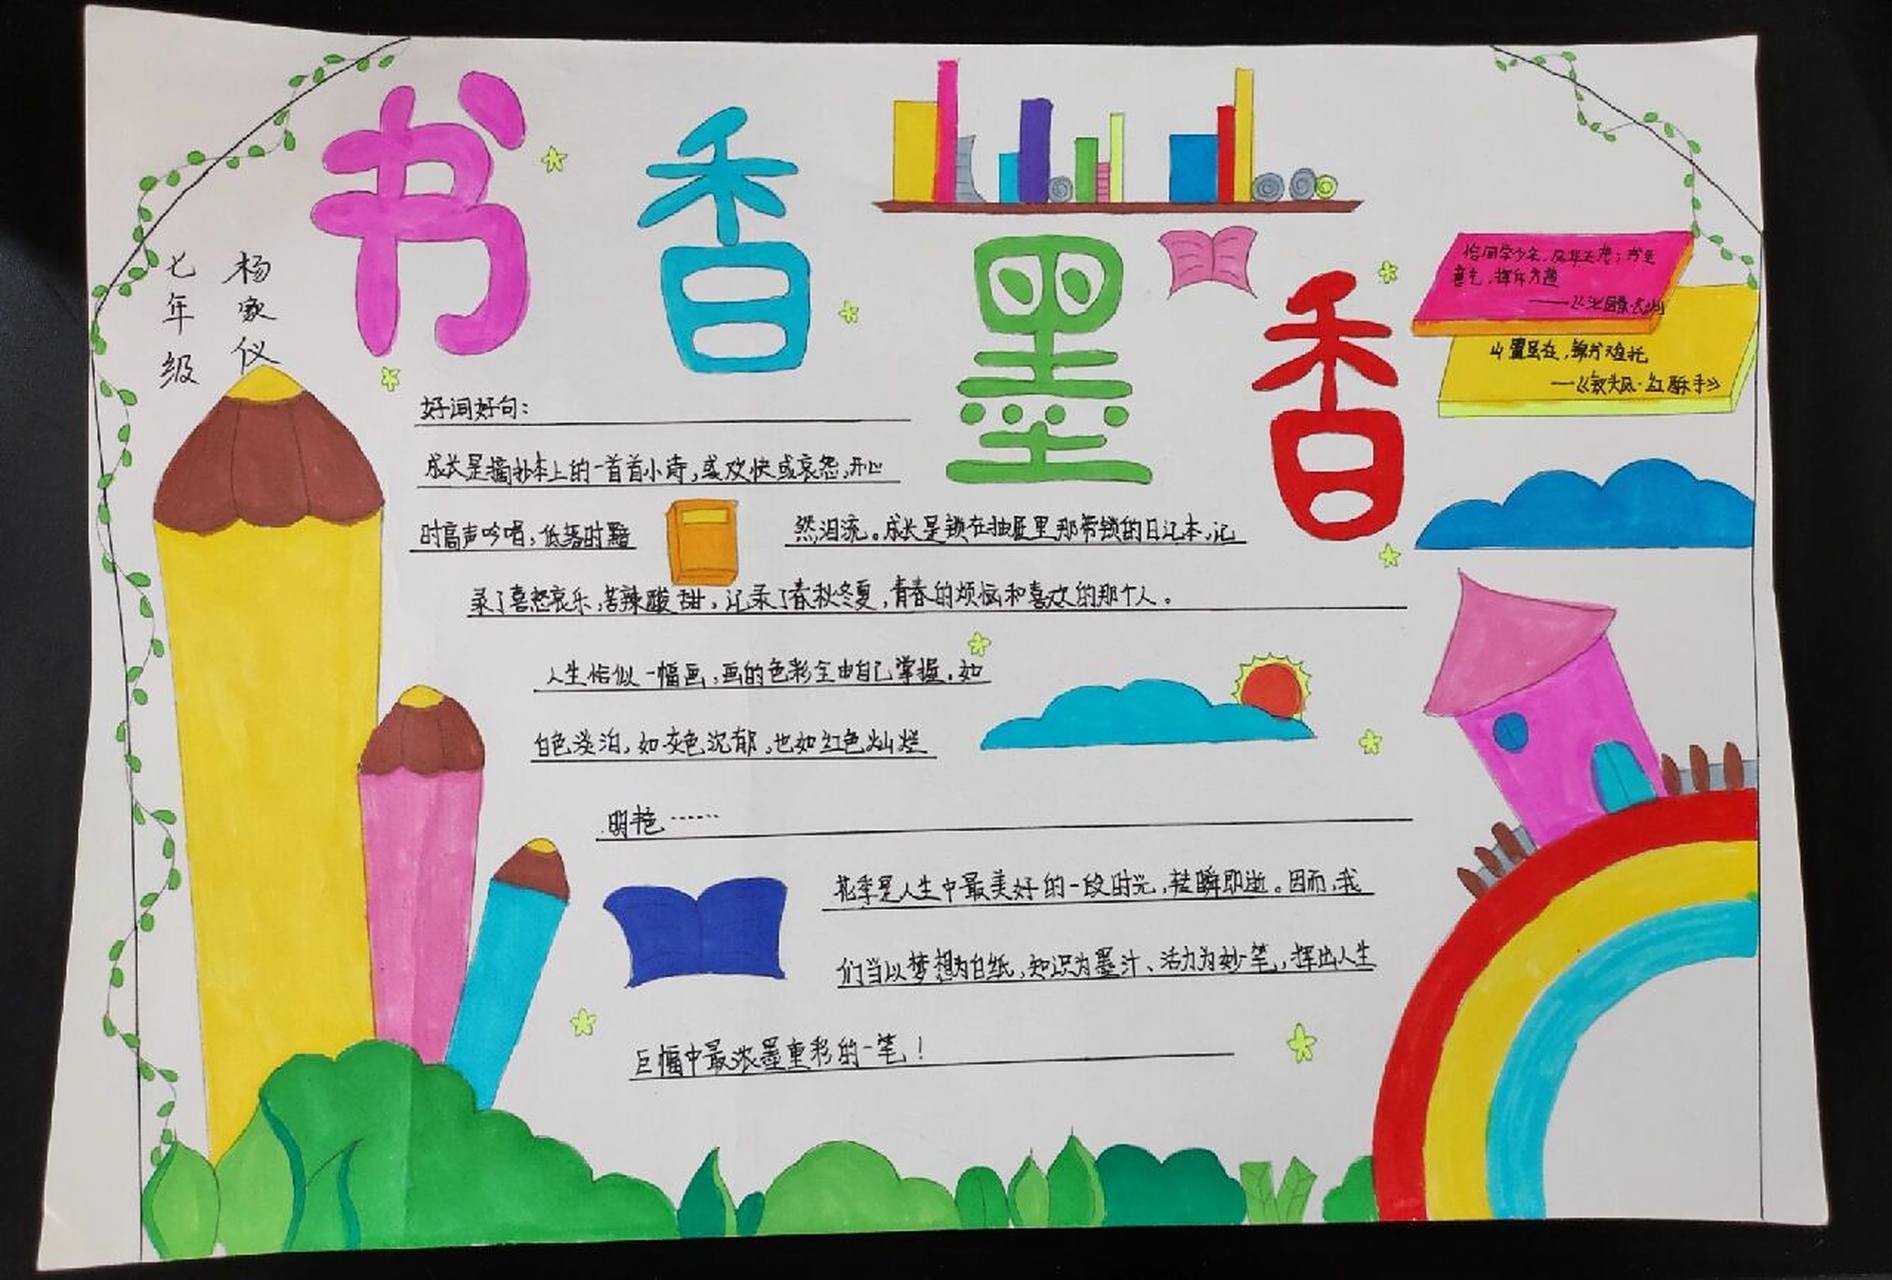 书香墨香
七年级
杨家仪
恰同学少年，风华正茂；书生
意气，挥斥方遒
——《沁园春·长沙》
山盟虽在，锦书难托
——《钗头凤·红酥手》
好词好句：
成长是摘抄本上的一首首小诗，或欢快或哀怨，开心
时高声吟唱，低落时黯
然泪流。成长是锁在抽屉里那带锁的日记本，记
录了喜怒哀乐，苦辣酸甜，记录了春秋冬夏，青春的烦恼和喜欢的那个人。
人生恰似一幅画，画的色彩全由自己掌握。如
白色淡泊，如灰色沉郁，也如红色灿烂
明艳……
花季是人生中最美好的一段时光，转瞬即逝。因而，我
们当以梦想为白纸，知识为墨汁、活力为妙笔，挥出人生
巨幅中最浓墨重彩的一笔！